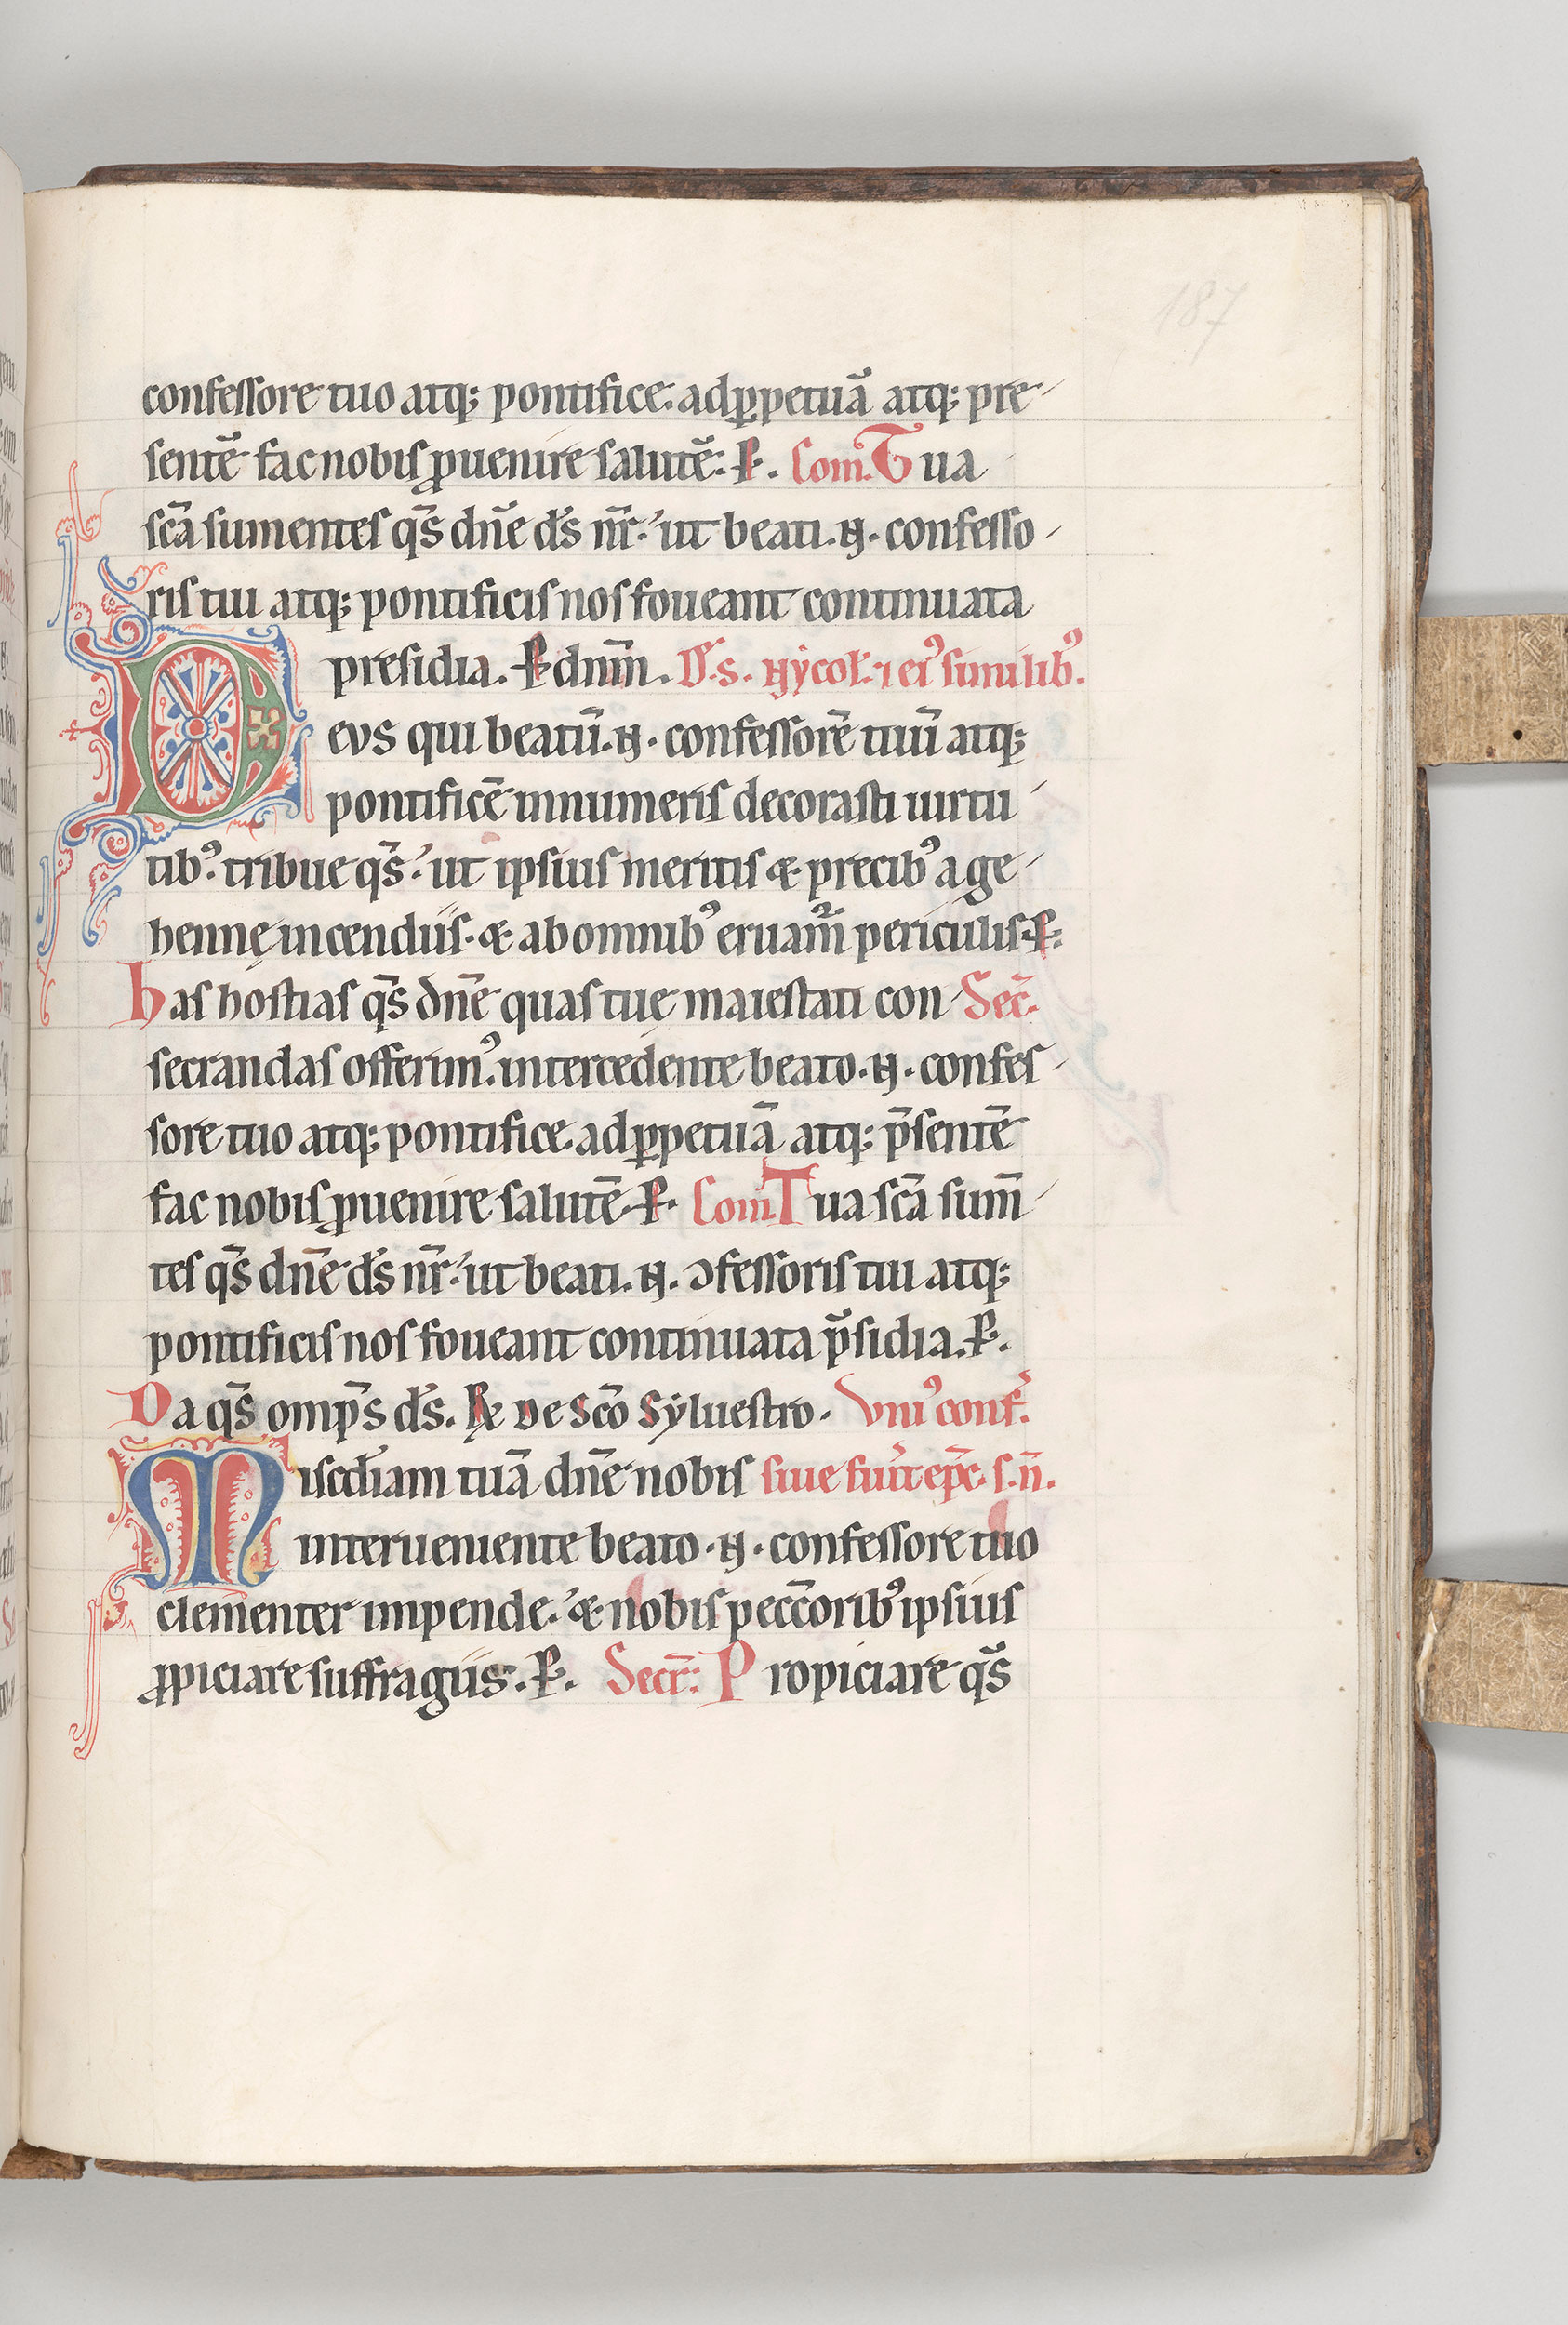 187
confessore tuo atq; pontifice. ad ꝑpetuā atq; pre-
sentē fac nobis ꝓuenire salutē. P. Com. Tua
sc̄a sumentes q̄s dn̄e ds̄ nr̄. ut beati .N. confesso-
ris tui atq; pontificis nos foueant continuata
presidia. P dnm̄. D̄s. Nycol. ⁊ ei᾽ similib᾽.
Devs qui beatū .N. confessorē tuū atq;
pontificē innumeris decorasti uirtu-
tib᾽. tribue q̄s. ut ipsius meritis & precib᾽ a ge-
hennę incendiis. & ab omnib᾽ eruam̄ periculis. P.
has hostias q̄s dn̄e quas tuę maiestati con- Sec̄.
secrandas offerim᾽. intercedente beato .N. confes-
sore tuo atq; pontifice. ad ꝑpetuā atq; p̄sentē
fac nobis ꝓuenire salutē. P. Com Tua sc̄a sum̄-
tes q̄s dn̄e ds̄ nr̄. ut beati .N. ɔfessoris tui atq;
pontificis nos foueant continuata p̄sidia. P.
Da q̄s omp̄s ds̄. R̵ De Sc̄o Syluestro. Vni᾽ conf̄.
Miscd̄iam tuā dn̄e nobis siue fūit ep̄c. s. n̄.
interueniente beato .N. confessore tuo
clementer impende. & nobis pecc̄orib᾽ ipsius
ꝓpiciare suffragiis. P. Secr̄: Propiciare q̄s